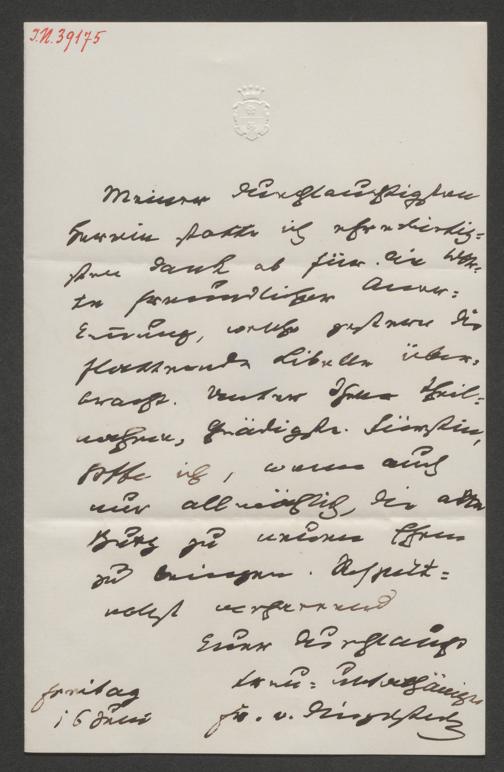 I.N. 39175
Meiner durchlauchtigsten
Herrin statte ich ehrerbietig=
sten Dank ab für die Wor=
te freundlicher Aner=
kennung, welche gestern die
flatternde Libelle über=
bracht. Unter Ihrer Theil=
nahme, gnädigste Fürstin,
hoffe ich, wenn auch
nur allmählich, die alte
Burg zu neuen Ehren
zu bringen. Respekt=
vollst verharrend
Euer Durchlaucht
treu=unterthäniger
Freitag
16 Juni
Fr. v. Dingelstedt